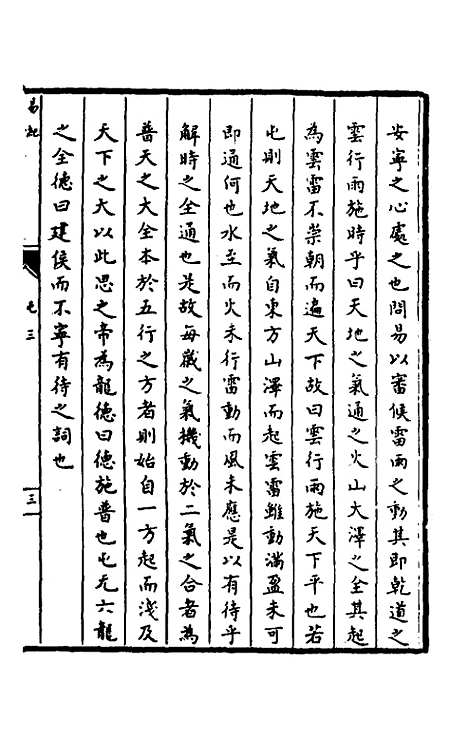 安寧之心處之也問易以審候雷雨之動其即乾道之
雲行雨施時乎曰天地之氣通之火山大澤之全其起
為雲雷不崇朝而遍天下故曰雲行雨施天下平也若
屯則天地之氣自東方山澤而起雲雷雖動滿盈未可
即通何也水至而火未行雷動而風未應是以有待乎
解時之全通也是故每歲之氣機動於二氣之合者為
普天之大全本於五行之方者則始自一方起而淺及
天下之大以此思之帝為龍德曰德施普也屯旡六龍
之全德曰建侯而不寧有待之詞也
易
屯三
三